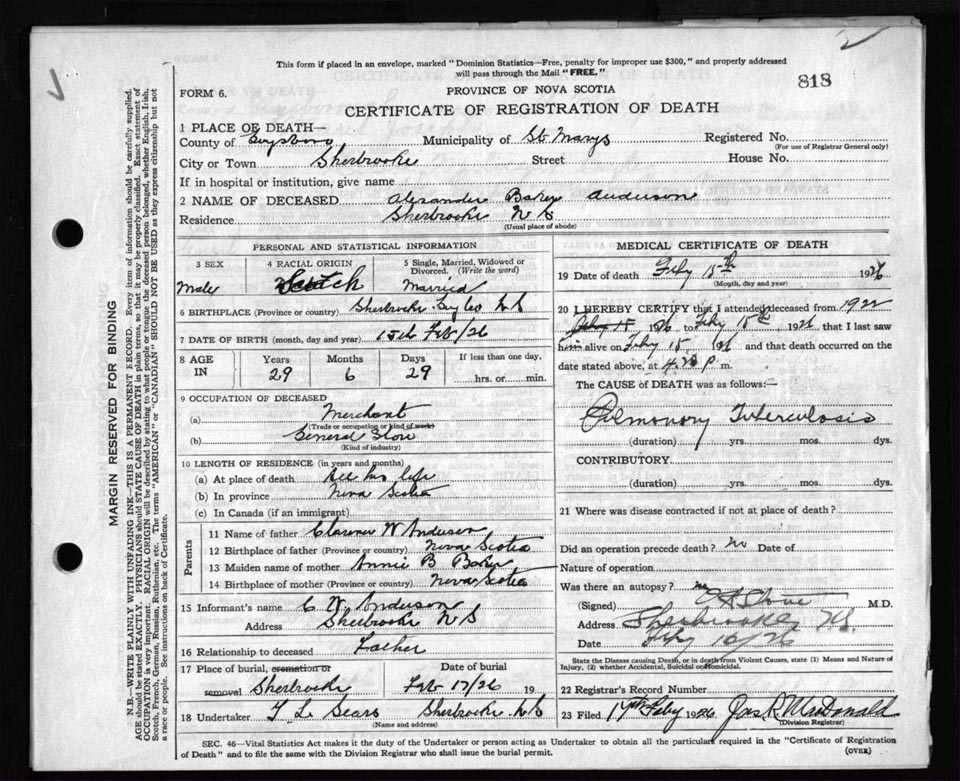 2
This form if placed in an envelope, marked "Dominion Statistics—Free, penalty for improper use $300," and properly addressed
will pass through the Mail "FREE."
818
FORM 6.
PROVINCE OF NOVA SCOTIA
CERTIFICATE OF REGISTRATION OF DEATH
1 PLACE OF DEATH—
County of Guysboro Municipality of St Marys Registered No.
(For use of Registrar General only)
City or Town Sherbrooke Street House No.
If in hospital or institution, give name
2 NAME OF DECEASED Alexander Baker Anderson
Residence Sherbrooke N S
(Usual place of abode)
PERSONAL AND STATISTICAL INFORMATION
3 SEX 4 RACIAL ORIGIN 5 Single, Married, Widowed or
Divorced. (Write the word)
Male Scotch Married
6 BIRTHPLACE (Province or country) Sherbrooke Guy Co N S
7 DATE OF BIRTH (month, day and year) 15th Feb/26
8 AGE IN Years Months Days If less than one day,
29 6 29 hrs. or min.
9 OCCUPATION OF DECEASED
(a) Merchant
(Trade or occupation or kind of work)
(b) General Store
(Kind of industry)
10 LENGTH OF RESIDENCE (in years and months)
(a) At place of death All his life
(b) In province Nova Scotia
(c) In Canada (if an immigrant)
Parents
11 Name of father Clarence W Anderson
12 Birthplace of father (Province or country) Nova Scotia
13 Maiden name of mother Annie B Baker
14 Birthplace of mother (Province or country) Nova Scotia
15 Informant's name C W Anderson
Address Sherbrooke N S
16 Relationship to deceased Father
17 Place of burial, cremation or Date of burial
removal Sherbrooke Feb 17/26 19
18 Undertaker T L Sears Sherbrooke N S
(Name and address)
MEDICAL CERTIFICATE OF DEATH
19 Date of death Feby 15th 1926
(Month, day and year)
20 I HEREBY CERTIFY that I attended deceased from 1922
Feby 15 1926 to Feby 15th 1926 that I last saw
him alive on Feby 15 1926 and that death occurred on the
date stated above, at p m.
The CAUSE of DEATH was as follows:—
Pulmonary Tuberculosis
(duration) yrs. mos. dys.
CONTRIBUTORY
(duration) yrs. mos. dys.
21 Where was disease contracted if not at place of death?
Did an operation precede death? no Date of
Nature of operation
Was there an autopsy? no
(Signed) M.D.
Address Sherbrooke N.S.
Date Feby 16/26
State the Disease causing Death, or in death from Violent Causes, state (1) Means and Nature of
Injury, (2) whether Accidental, Suicidal or Homicidal.
22 Registrar's Record Number
23 Filed 17th Feby 1926 Jas R McDonald
(Division Registrar)
SEC. 46—Vital Statistics Act makes it the duty of the Undertaker or person acting as Undertaker to obtain all the particulars required in the "Certificate of Registration
of Death" and to file the same with the Division Registrar who shall issue the burial permit. (OVER)
MARGIN RESERVED FOR BINDING
N.B.—WRITE PLAINLY WITH UNFADING INK—THIS IS A PERMANENT RECORD. Every item of information should be carefully supplied.
AGE should be stated EXACTLY. PHYSICIANS should STATE CAUSE OF DEATH in plain terms, so that it may be properly classified. Exact statement of
OCCUPATION is very important. RACIAL ORIGIN will be described by stating to what people or tongue the deceased person belonged, whether English, Irish,
Scotch, French, German, Russian, Ruthenian, etc. The terms "AMERICAN" or "CANADIAN" SHOULD NOT BE USED as they express citizenship but not
a race or people. See instructions on back of Certificate.